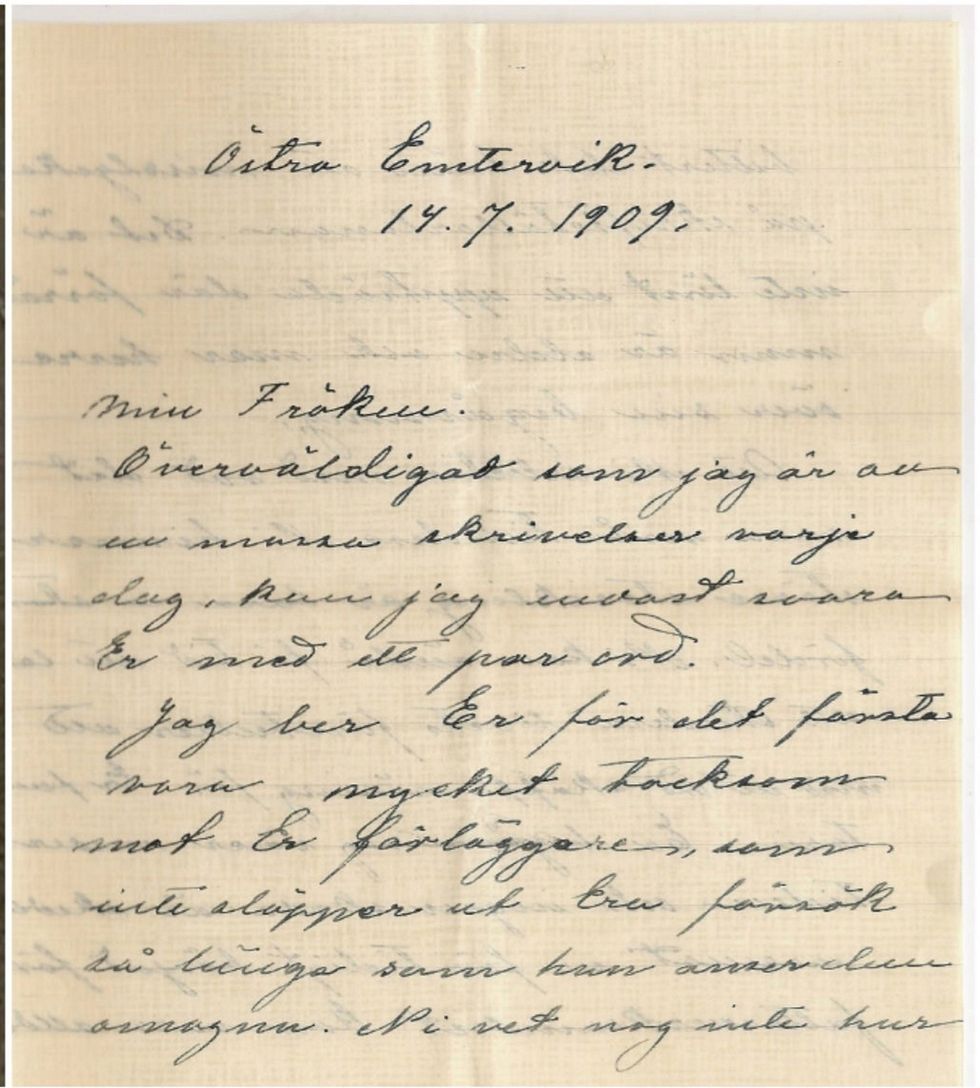 Östra Emtervik.
14.7.1909.
Min Fröken.
Överväldigad som jag är av
en massa skrivelser varje
dag, kan jag endast svara
Er med ett par ord.
Jag ber Er för det första
vara mycket tacksam
mot Er förläggare, som
inte släpper ut Era försök
så länge som han anser dem
omogna. Ni vet nog inte hur